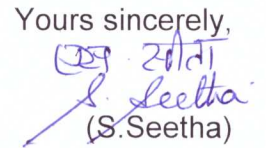 Yours sincerely,
एस सीता
S. Seetha
(S.Seetha)